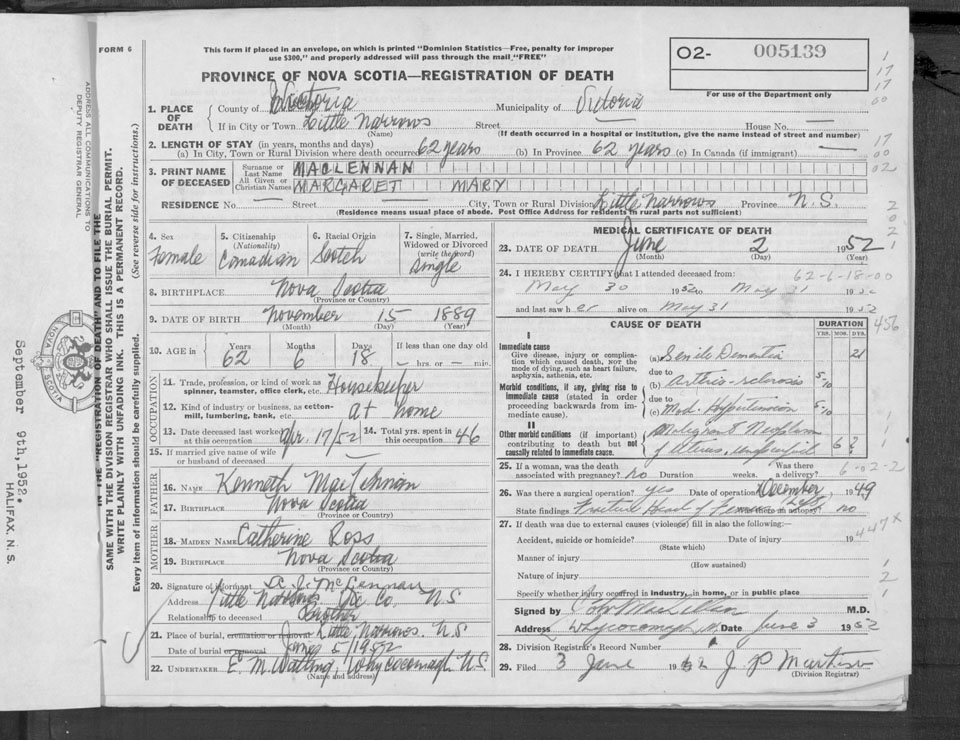 FORM 6
This form if placed in an envelope, on which is printed "Dominion Statistics—Free, penalty for improper
use $300," and properly addressed will pass through the mail "FREE"
O2- 005139
For use of the Department only
PROVINCE OF NOVA SCOTIA—REGISTRATION OF DEATH
1. PLACE OF DEATH
County of Victoria Municipality of Victoria
If in City or Town Little Narrows Street — House No. —
(Name) (If death occurred in a hospital or institution, give the name instead of street and number)
2. LENGTH OF STAY (in years, months and days)
(a) In City, Town or Rural Division where death occurred 62 years (b) In Province 62 years (c) In Canada (if immigrant) —
3. PRINT NAME OF DECEASED
Surname or Last Name MACLENNAN
All Given or Christian Names MARGARET MARY
RESIDENCE No. — Street — City, Town or Rural Division Little Narrows Province N.S.
(Residence means usual place of abode. Post Office Address for residents in rural parts not sufficient)
4. Sex Female
5. Citizenship (Nationality) Canadian
6. Racial Origin Scotch
7. Single, Married, Widowed or Divorced (write the word) Single
8. BIRTHPLACE Nova Scotia
(Province or Country)
9. DATE OF BIRTH November 15 1889
(Month) (Day) (Year)
10. AGE in Years 62 Months 6 Days 18 If less than one day old — hrs. or — min.
OCCUPATION
11. Trade, profession, or kind of work as spinner, teamster, office clerk, etc. Housekeeper
12. Kind of industry or business, as cotton-mill, lumbering, bank, etc. at home
13. Date deceased last worked at this occupation Apr. 17/52 14. Total yrs. spent in this occupation 46
15. If married give name of wife or husband of deceased —
FATHER
16. NAME Kenneth MacLennan
17. BIRTHPLACE Nova Scotia
(Province or Country)
MOTHER
18. MAIDEN NAME Catherine Ross
19. BIRTHPLACE Nova Scotia
(Province or Country)
20. Signature of informant McLennan
Address Little Narrows Vic Co. N.S.
Relationship to deceased Brother
21. Place of burial, cremation or removal Little Narrows. N.S
Date of burial or removal June 5/1952
22. UNDERTAKER E. M. Watling, Whycocomagh N.S.
(Name and address)
MEDICAL CERTIFICATE OF DEATH
23. DATE OF DEATH June 2 1952
(Month) (Day) (Year)
24. I HEREBY CERTIFY that I attended deceased from:
62-6-18-00
May 30 1952 to May 31 1952
and last saw her alive on May 31 1952
CAUSE OF DEATH DURATION
YRS. MOS. DYS.
456
I
Immediate cause
Give disease, injury or complication which caused death, NOT the mode of dying, such as heart failure, asphyxia, asthenia, etc.
(a) Senile Dementia 21
due to
Morbid conditions, if any, giving rise to immediate cause (stated in order proceeding backwards from immediate cause).
(b) Arterio-sclerosis 5-10
due to
(c) Mod. Hypertension 5-10
II
Other morbid conditions (if important) contributing to death but not causally related to immediate cause.
Malignant Neoplasm of Uterus, unspecified 6 ?
25. If a woman, was the death associated with pregnancy? no Duration weeks. Was there a delivery?
6-02-2
26. Was there a surgical operation? yes Date of operation December 1949
State findings Fracture Head of Femur Was there an autopsy? no
27. If death was due to external causes (violence) fill in also the following:—
Accident, suicide or homicide? Date of injury 194
(State which)
447x
Manner of injury
(How sustained)
Nature of injury
Specify whether injury occurred in industry, in home, or in public place
Signed by M.D.
Address Whycocomagh Date June 3 1952
28. Division Registrar's Record Number
29. Filed 3 June 1952 J. P.
(Division Registrar)
ADDRESS ALL COMMUNICATIONS TO
DEPUTY REGISTRAR GENERAL
September 9th, 1952.
HALIFAX, N. S.
IN THE "REGISTRATION OF DEATH" AND TO FILE THE
SAME WITH THE DIVISION REGISTRAR WHO SHALL ISSUE THE BURIAL PERMIT.
WRITE PLAINLY WITH UNFADING INK. THIS IS A PERMANENT RECORD.
Every item of information should be carefully supplied. (See reverse side for instructions.)